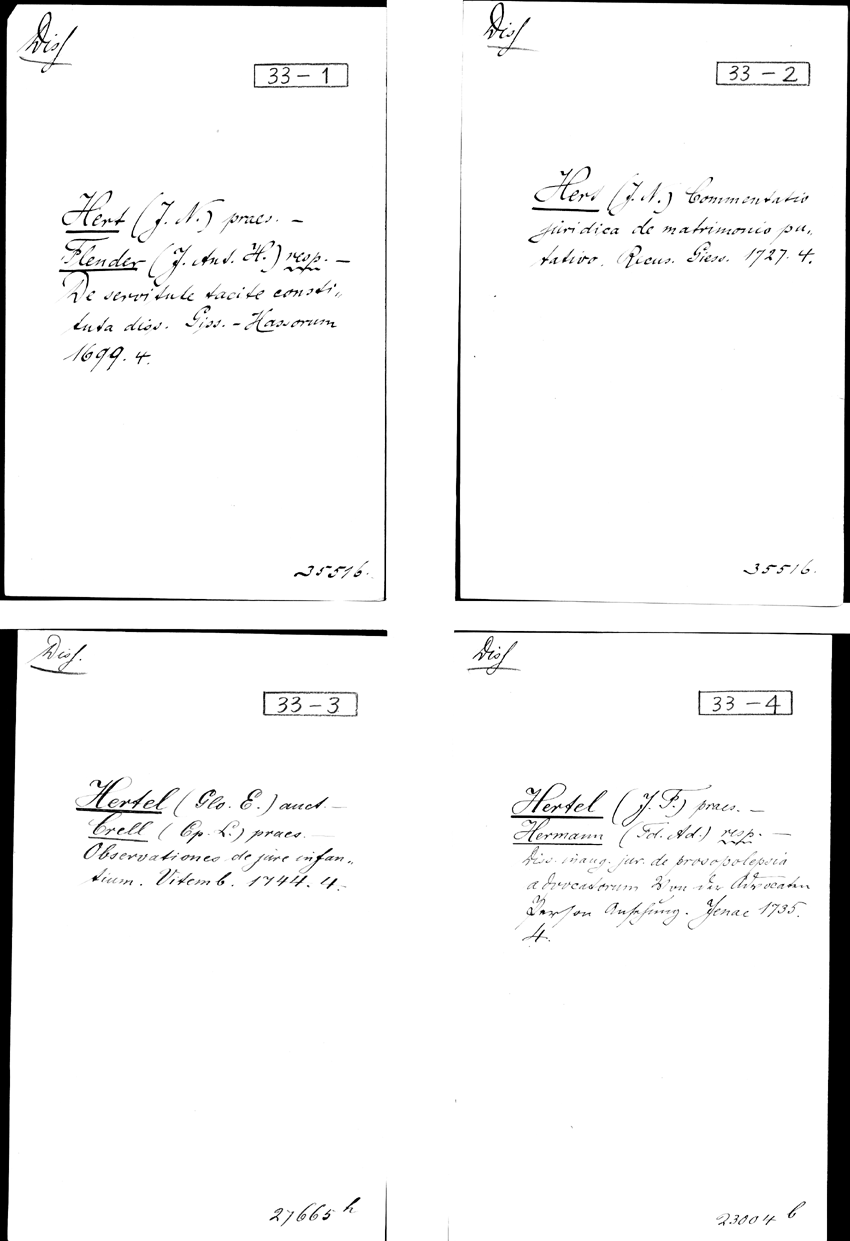 Diss
33 – 1
Hert (J. N.) praes. –
Flender (J. Ant. H.) resp. –
De servitute tacite consti„
tuta diss. Giss. - Hassorum
1699. 4.
35516.
Diss
33 – 2
Hert (J. N.) Commentatio
juridica de matrimonio pu„
tativo. Recus. Giess. 1727. 4.
35516.
Diss.
33 – 3
Hertel (Glo. E.) auct. –
Crell (Cp. L.) praes. –
Observationes de jure infan„
tium. Vitemb. 1744. 4.
27665 h
Diss
33 – 4
Hertel (J. F.) praes. –
Hermann (Fd. Ad.) resp. –
Diss. inaug. jur. de prosopolepsia
advocatorum Von der Advocaten
Person Ansehung. Jenae 1735.
4.
23004 b